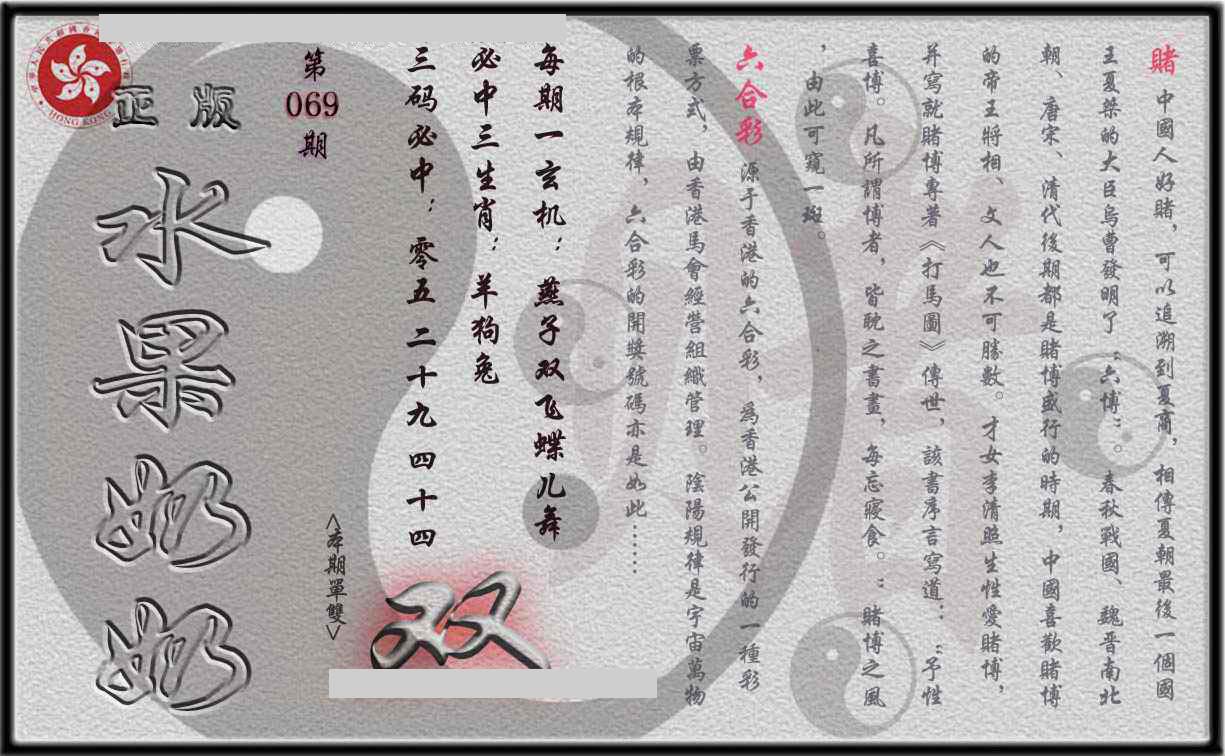 賭 中國人好賭，可以追溯到夏商，相傳夏朝最後一個國
王夏桀的大臣烏曹發明了“六博”春秋戰國、魏晋南北
朝、唐宋、清代後期都是賭博盛行的時期，中國喜歡賭博
的帝王將相、文人也不可勝數。才女李清照生性愛賭博，
并寫就賭博專著《打馬圖》傳世，該書序言寫道：“予性
喜博。凡所謂博者，皆耽之書畫，每忘寢食。”賭博之風
，由此可窺一斑。
六合彩 源于香港的六合彩，為香港公開發行的一種彩
票方式，由香港馬會經營組織管理。陰陽規律是宇宙萬物
的根本規律，六合彩的開獎號碼亦是如此……
每期一玄机：燕子双飞蝶儿舞
必中三生肖：羊狗兔
三码必中：零五 二十九 四十四
<本期單雙>
双
第
069
期
正版
水果奶奶
HONG KONG